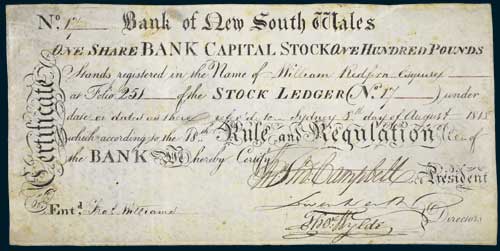 No. 17 Bank of New South Wales
ONE SHARE BANK CAPITAL STOCK ONE HUNDRED POUNDS
Certificate
Stands registered in the Name of William Redfern Esquire
at Folio 251 of the STOCK LEDGER (No. 17) under
date as dated as there Sydney 5th day of August 1818
which according to the 18th Rule and Regulation of
the BANK We hereby Certify
Jno. Thos. Campbell President
Entd. Thos. Williams
Thos. Wylde Directors